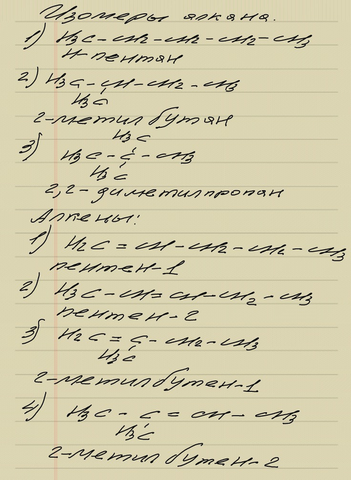 Изомеры алкана.
1) H₃C – CH₂ – CH₂ – CH₂ – CH₃
н-пентан
2) H₃C – CH – CH₂ – CH₃
H₃C
2-метил бутан
H₃C
3) H₃C – C – CH₃
H₃C
2,2-диметилпропан
Алкены:
1) H₂C = CH – CH₂ – CH₂ – CH₃
пентен-1
2) H₃C – CH = CH – CH₂ – CH₃
пентен-2
3) H₂C = C – CH₂ – CH₃
H₃C
2-метил бутен-1
4) H₃C – C = CH – CH₃
H₃C
2-метил бутен-2